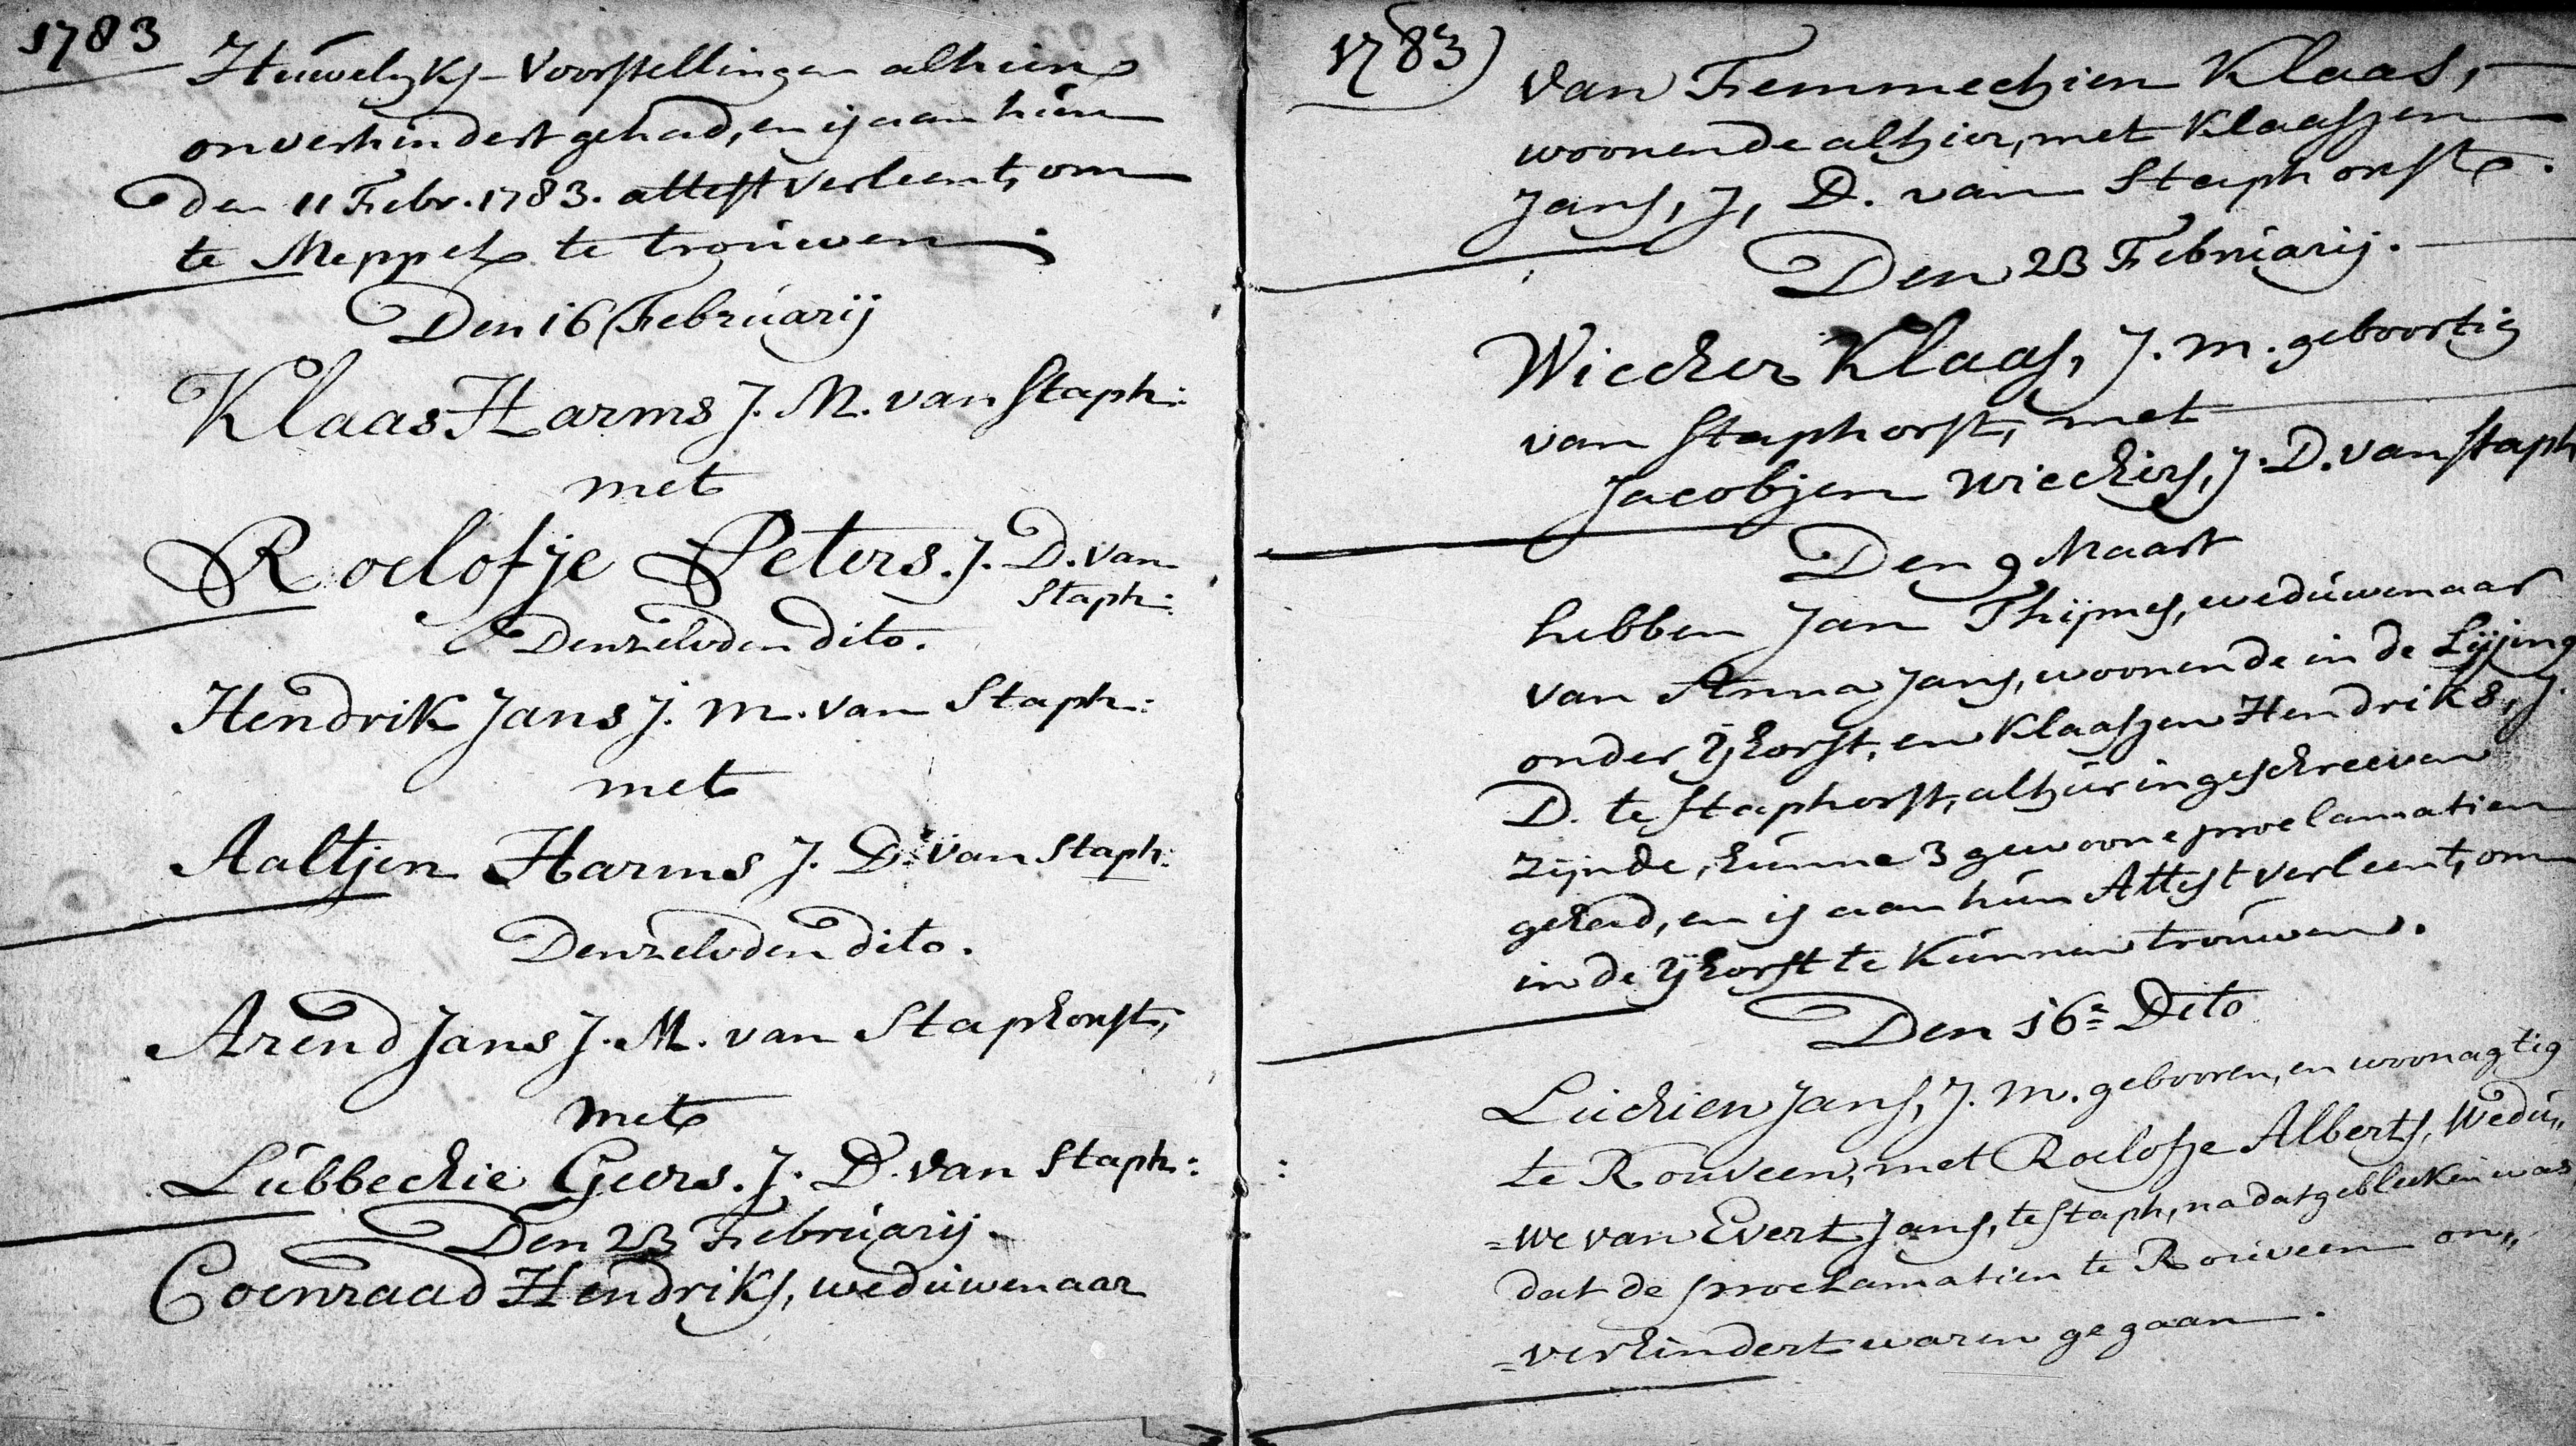 1783
Huwelyks-Voorstellingen alhier
onverhindert gehad, en is aan hun
den 11 Febr. 1783. attest verleent, om
te Meppel te trouwen.
Den 16 Februarij
Klaas Harms J. M. van Staph:
met
Roelofje Peters. J. D. van
Staph:
Denzelvden dito.
Hendrik Jans J. M. van Staph:
met
Aaltjen Harms J. D. van Staph:
Denzelvden dito.
Arend Jans J. M. van Staphorst,
met
Lubbechie Geers. J. D. van Staph:
Den 23 Februarij.
Coenraad Hendriks, weduwenaar
1783
van Femmechien Klaas,
woonende alhier, met Klaasjen
Jans, J, D. van Staphorst.
Den 23 Februarij.
Wiecher Klaas, J. M. geboortig
van Staphorst, met
Jacobjen Wiechers, J. D. van Staph
Den 9 Maart
hebben Jan Thijmes, weduwenaar
van Anna Jans, woonende in de
onder Yhorst, en Klaasjen Hendriks, J.
D. te Staphorst, alhier ingeschreeven
zijnde, hunne 3 gewoone proclamatien
gehad, en is aan hun Attest verleent, om
in de Yhorst te kunnen trouwen.
Den 16e Dito
Luchien Jans, J. M. gebooren, en woonagtig
te Rouveen, met Roelofje Alberts, Wedu„
=we van Evert Jans, te Staph, na dat gebleeken was
dat de proclamatien te Rouveen on„
=verhindert waren gegaan.